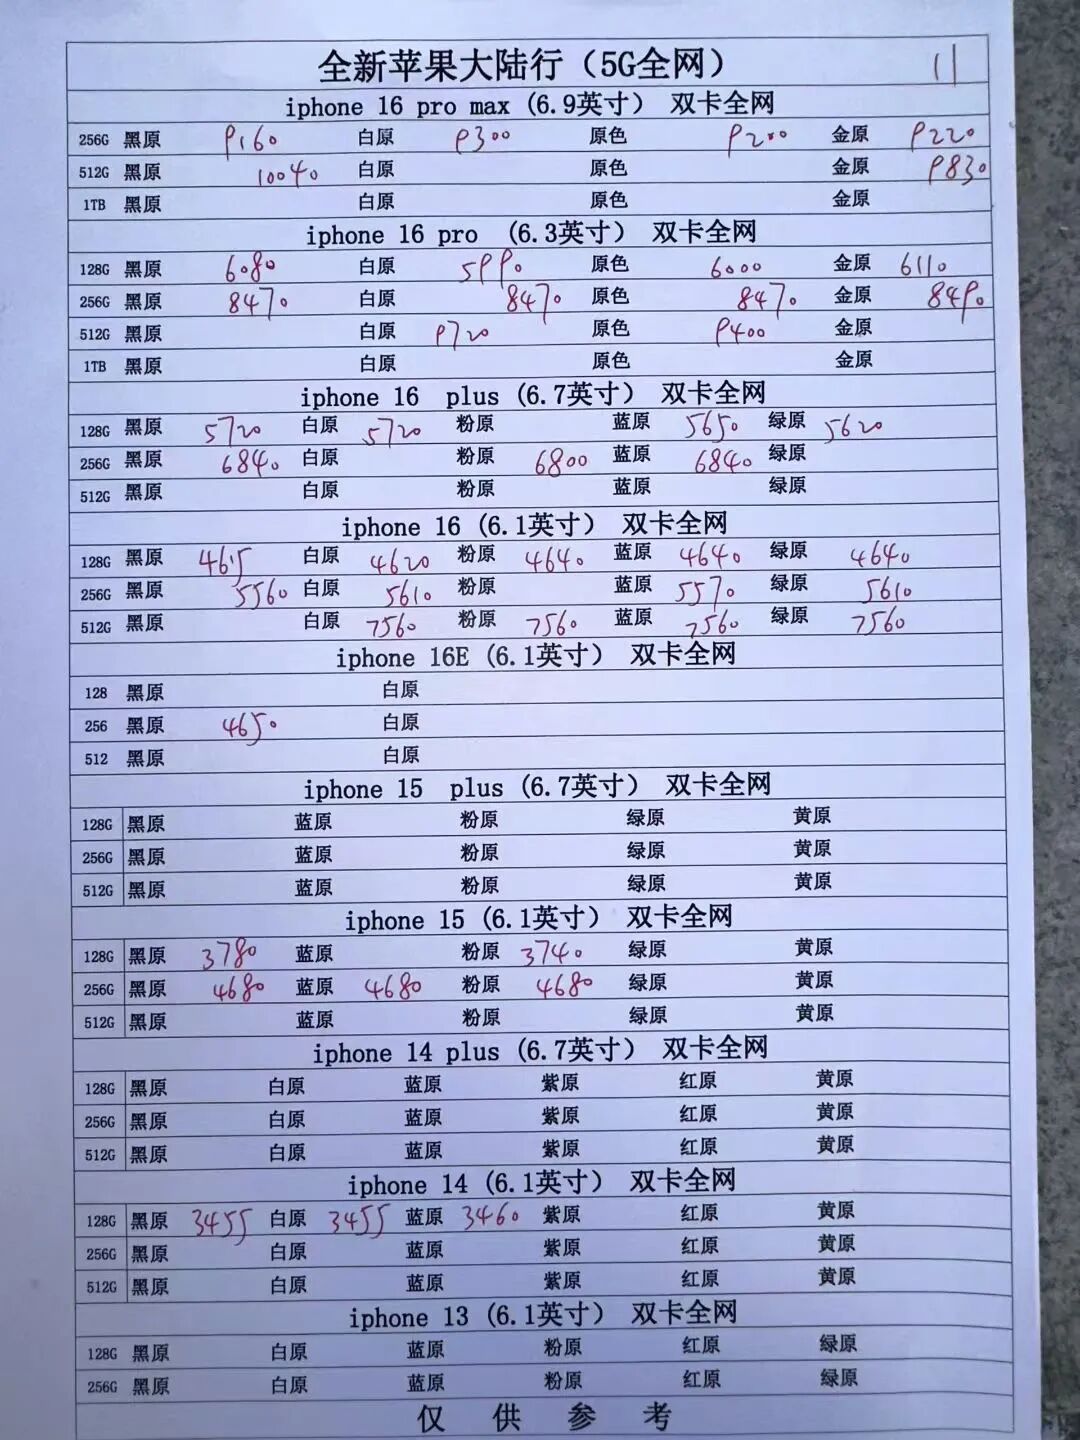 全新苹果大陆行（5G全网） 11
iphone 16 pro max (6.9英寸） 双卡全网
256G 黑原 9160 白原 9300 原色 9200 金原 9220
512G 黑原 10040 白原 原色 金原 9830
1TB 黑原 白原 原色 金原
iphone 16 pro (6.3英寸） 双卡全网
128G 黑原 6080 白原 5990 原色 6000 金原 6110
256G 黑原 8470 白原 8470 原色 8470 金原 8490
512G 黑原 白原 9720 原色 9400 金原
1TB 黑原 白原 原色 金原
iphone 16 plus (6.7英寸） 双卡全网
128G 黑原 5720 白原 5720 粉原 蓝原 5650 绿原 5620
256G 黑原 6840 白原 粉原 6800 蓝原 6840 绿原
512G 黑原 白原 粉原 蓝原 绿原
iphone 16 (6.1英寸） 双卡全网
128G 黑原 4615 白原 4620 粉原 4640 蓝原 4640 绿原 4640
256G 黑原 5560 白原 5610 粉原 蓝原 5570 绿原 5610
512G 黑原 白原 7560 粉原 7560 蓝原 7560 绿原 7560
iphone 16E (6.1英寸） 双卡全网
128 黑原 白原
256 黑原 4650 白原
512 黑原 白原
iphone 15 plus (6.7英寸） 双卡全网
128G 黑原 蓝原 粉原 绿原 黄原
256G 黑原 蓝原 粉原 绿原 黄原
512G 黑原 蓝原 粉原 绿原 黄原
iphone 15 (6.1英寸） 双卡全网
128G 黑原 3780 蓝原 粉原 3740 绿原 黄原
256G 黑原 4680 蓝原 4680 粉原 4680 绿原 黄原
512G 黑原 蓝原 粉原 绿原 黄原
iphone 14 plus (6.7英寸） 双卡全网
128G 黑原 白原 蓝原 紫原 红原 黄原
256G 黑原 白原 蓝原 紫原 红原 黄原
512G 黑原 白原 蓝原 紫原 红原 黄原
iphone 14 (6.1英寸） 双卡全网
128G 黑原 3455 白原 3455 蓝原 3460 紫原 红原 黄原
256G 黑原 白原 蓝原 紫原 红原 黄原
512G 黑原 白原 蓝原 紫原 红原 黄原
iphone 13 (6.1英寸） 双卡全网
128G 黑原 白原 蓝原 粉原 红原 绿原
256G 黑原 白原 蓝原 粉原 红原 绿原
仅 供 参 考